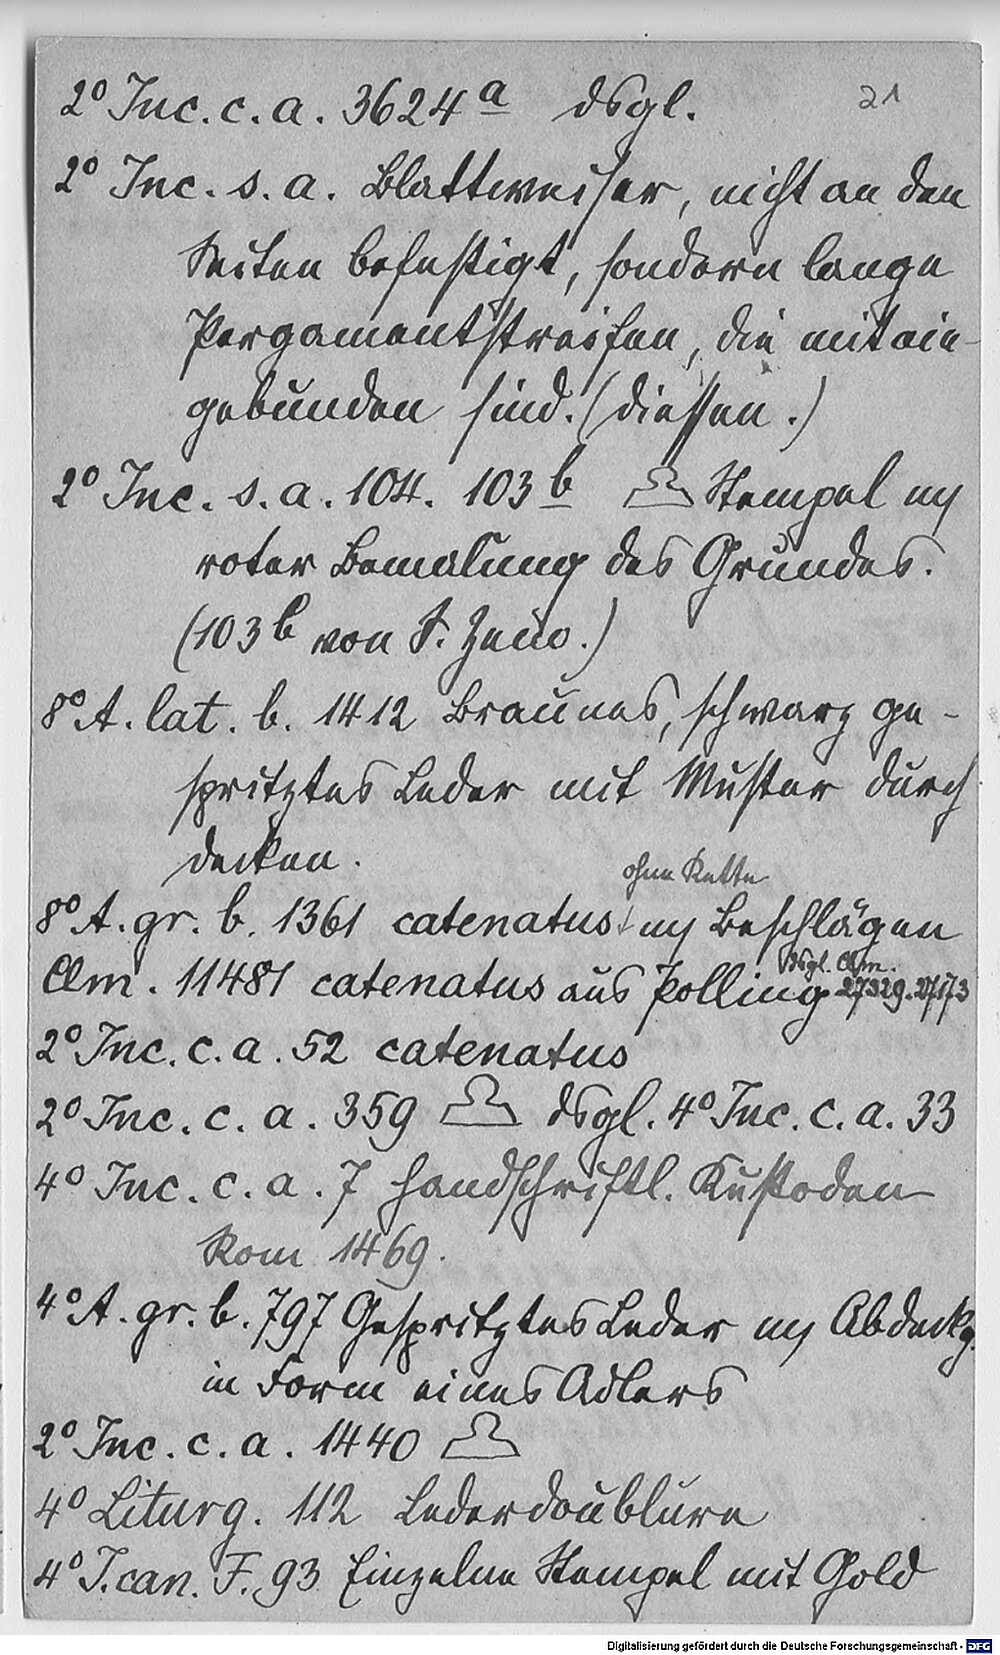 21
2° Inc. c. a. 3624a dsgl.
2° Inc. s. a. Blattweiser, nicht an den
Seiten befestigt, sondern lange
Pergamentstreifen, die mit ein-
gebunden sind. (Diessen.)
2° Inc. s. a. 104. 103b Stempel m
roter Bemalung des Grundes.
(103b von S. Zeno.)
8° A. lat. b. 1412 Braunes, schwarz ge-
spritztes Leder mit Muster durch
decken.
ohne Kette
8° A. gr. b. 1361 catenatus m Beschlägen
dsgl. Clm.
Clm. 11481 catenatus aus Polling 27329. 27173
2° Inc. c. a. 52 catenatus
2° Inc. c. a. 359 dsgl. 4° Inc. c. a. 33
4° Inc. c. a. 7 handschriftl. Kustoden
Rom 1469.
4° A. gr. b. 797 Gespritztes Leder m Abdeckg.
in Form eines Adlers
2° Inc. c. a. 1440
4° Liturg. 112 Lederdoublure
4° J. can. F. 93 Einzelne Stempel mit Gold
Digitalisierung gefördert durch die Deutsche Forschungsgemeinschaft - DFG